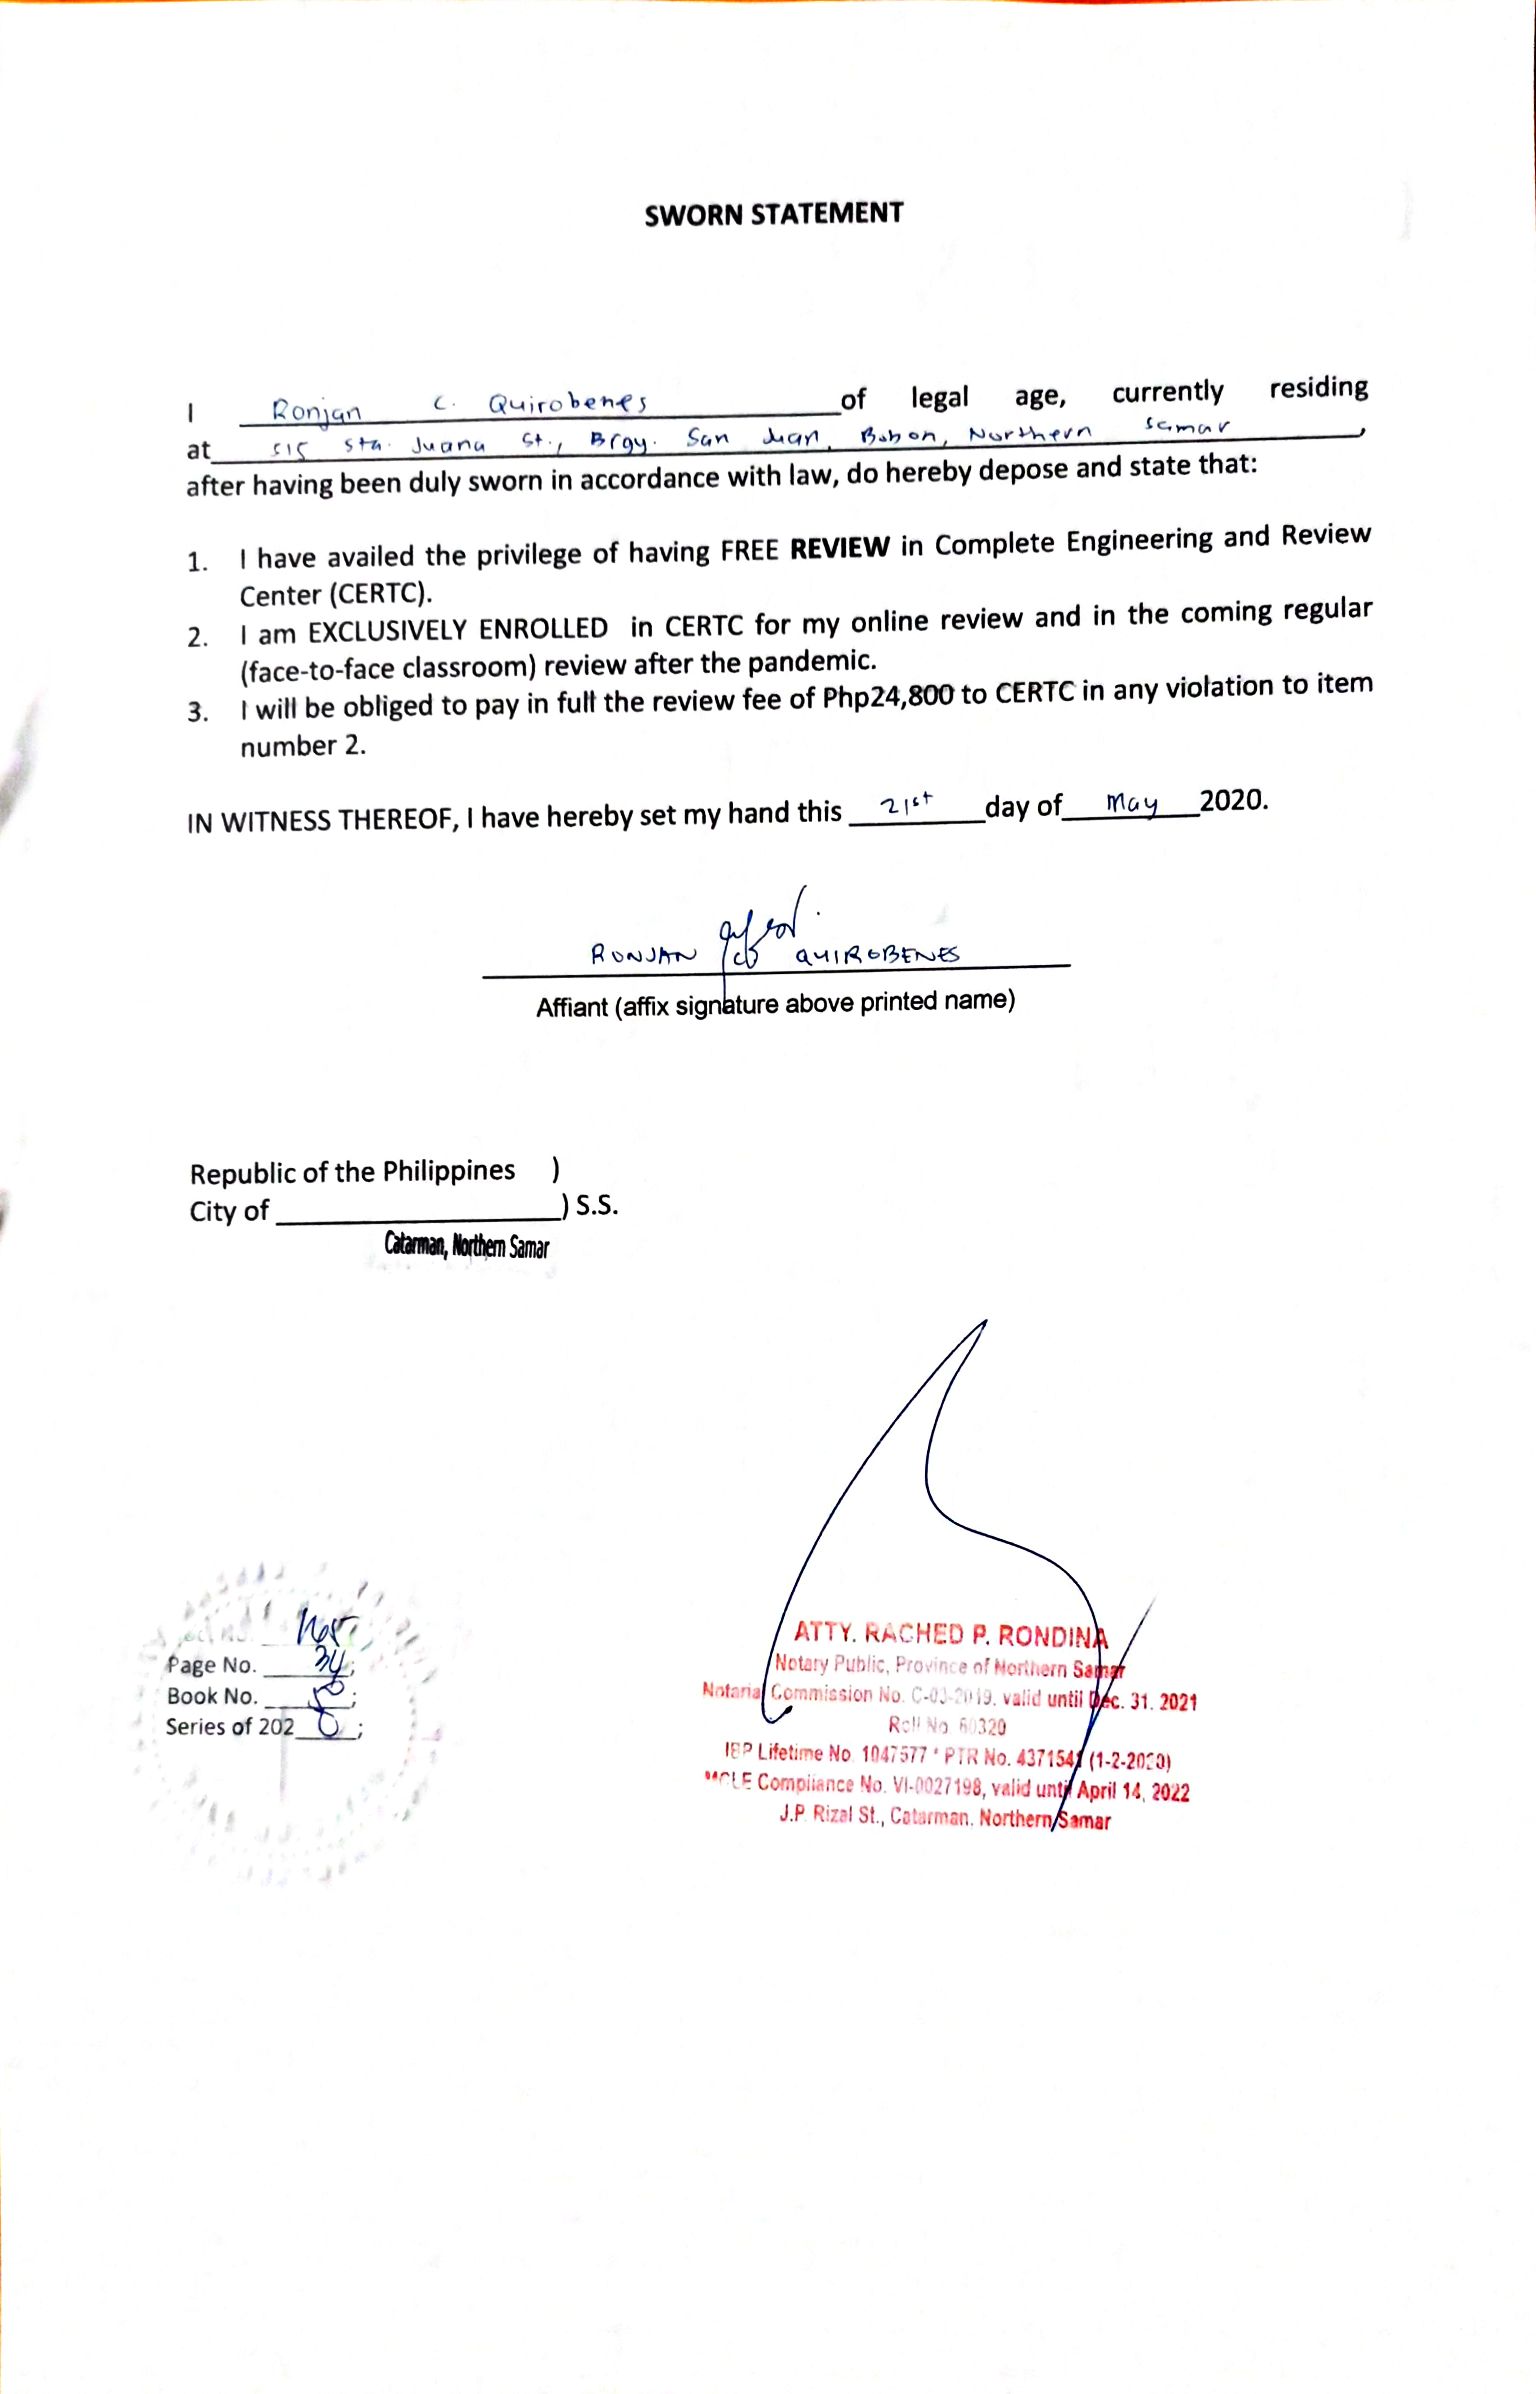 SWORN STATEMENT
I Ronjan C. Quirobenes of legal age, currently residing
at 515 Sta. Juana St., Brgy. San Juan, Bobon, Northern Samar,
after having been duly sworn in accordance with law, do hereby depose and state that:
1. I have availed the privilege of having FREE REVIEW in Complete Engineering and Review
Center (CERTC).
2. I am EXCLUSIVELY ENROLLED in CERTC for my online review and in the coming regular
(face-to-face classroom) review after the pandemic.
3. I will be obliged to pay in full the review fee of Php24,800 to CERTC in any violation to item
number 2.
IN WITNESS THEREOF, I have hereby set my hand this 21st day of May 2020.
RONJAN C. QUIROBENES
Affiant (affix signature above printed name)
Republic of the Philippines )
City of ) S.S.
Catarman, Northern Samar
Page No. 34;
Book No. ;
Series of 2020;
ATTY. RACHED P. RONDINA
Notary Public, Province of Northern Samar
Notarial Commission No. C-03-2019, valid until Dec. 31. 2021
Roll No. 60320
IBP Lifetime No. 1047577 * PTR No. 4371541 (1-2-2020)
MCLE Compliance No. VI-0027198, valid until April 14, 2022
J.P. Rizal St., Catarman, Northern Samar